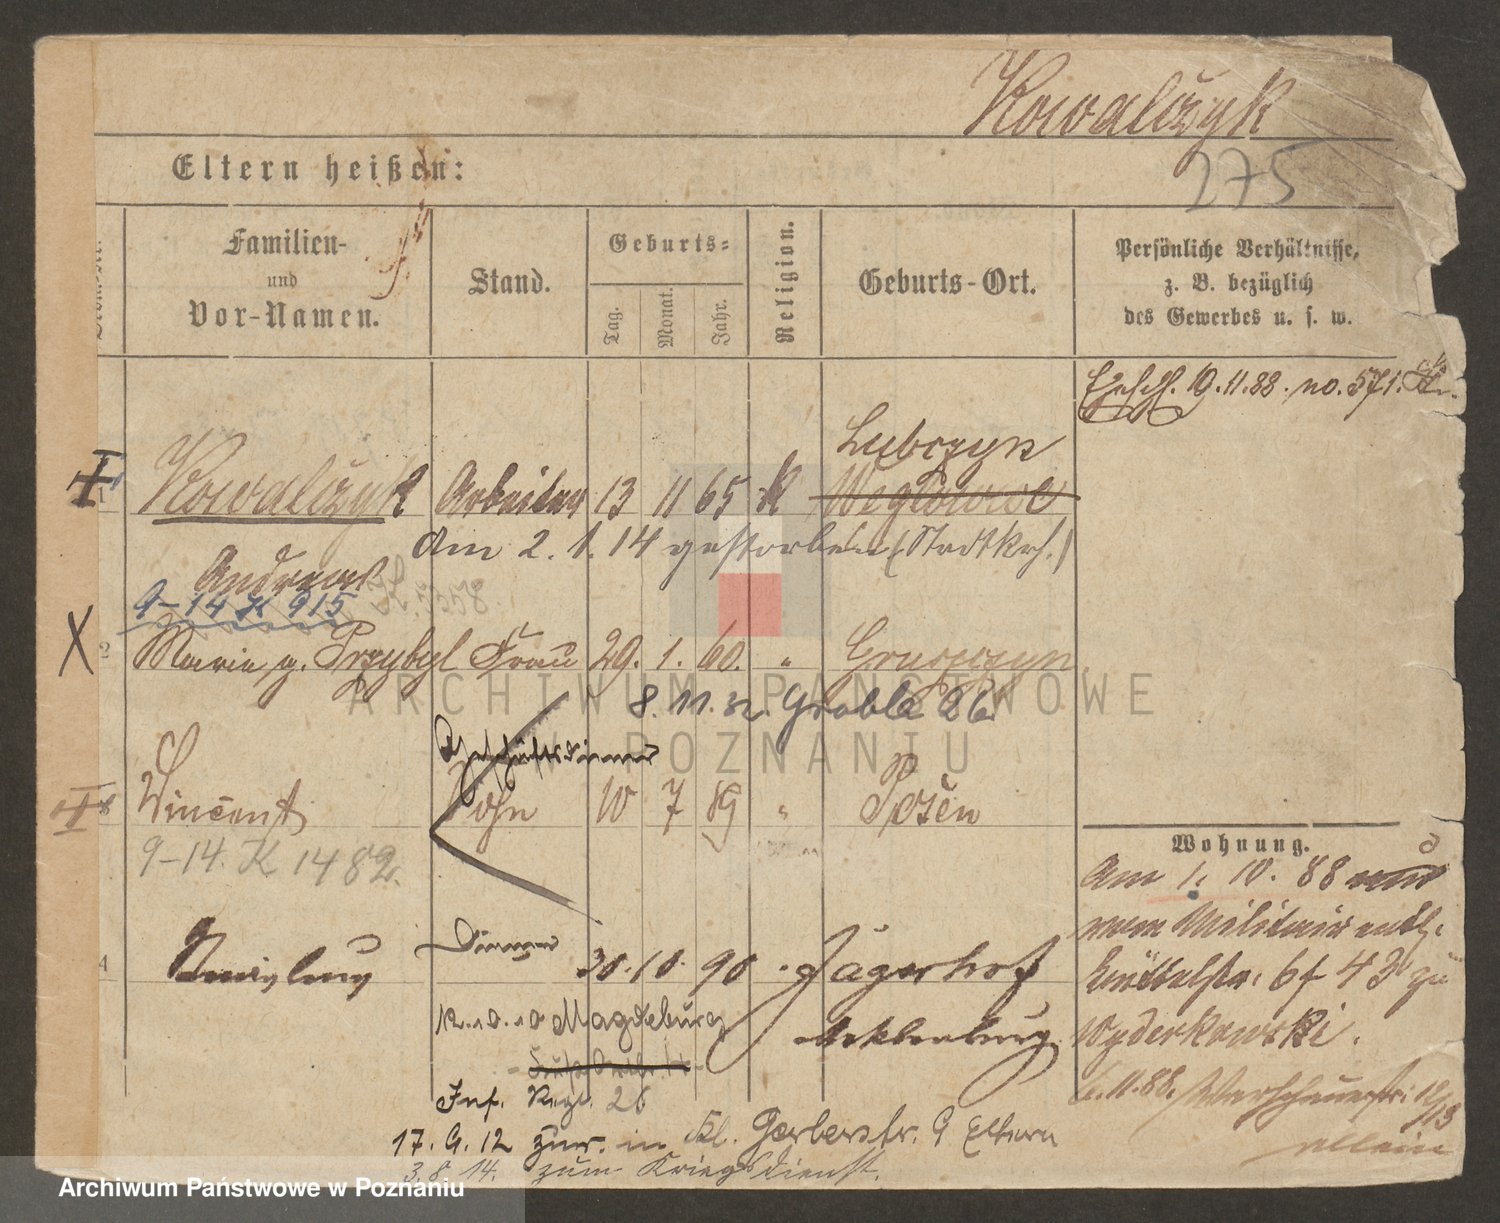 Kowalczyk
275
Eltern heißen:
Familien-
und
Vor-Namen.
Stand.
Geburts-
Tag.
Monat.
Jahr.
Religion.
Geburts-Ort.
Persönliche Verhältnisse,
z. B. bezüglich
des Gewerbes u. s. w.
Ehesch. 10.11.88. no. 571.
Lubczyn
1 Kowalczyk Arbeiter 13 11 65 k Węglowice
am 2. 1. 14 gestorben (Stadtkrh.)
Andreas
9-14 K 915
2 Marie g. Przybyl Frau 29. 1. 60. "
8.11. Groble 26
Geschäftsdiener
Vincent Sohn 10 7 89 " Posen
9-14. K 1482.
Wohnung.
Am 1. 10. 88
vom Militair entl.
43 zu
Wyderkowski.
11.88. 12/13
allein
4 Diener 30.10.90. Jägerhof
Mecklenburg
12.10.10 Magdeburg
Inf. Regt. 26
17.9.12 zur. in Kl. Gerberstr. 9 Eltern
3.8.14. zum Kriegsdienst.
ARCHIWUM PAŃSTWOWE
W POZNANIU
Archiwum Państwowe w Poznaniu